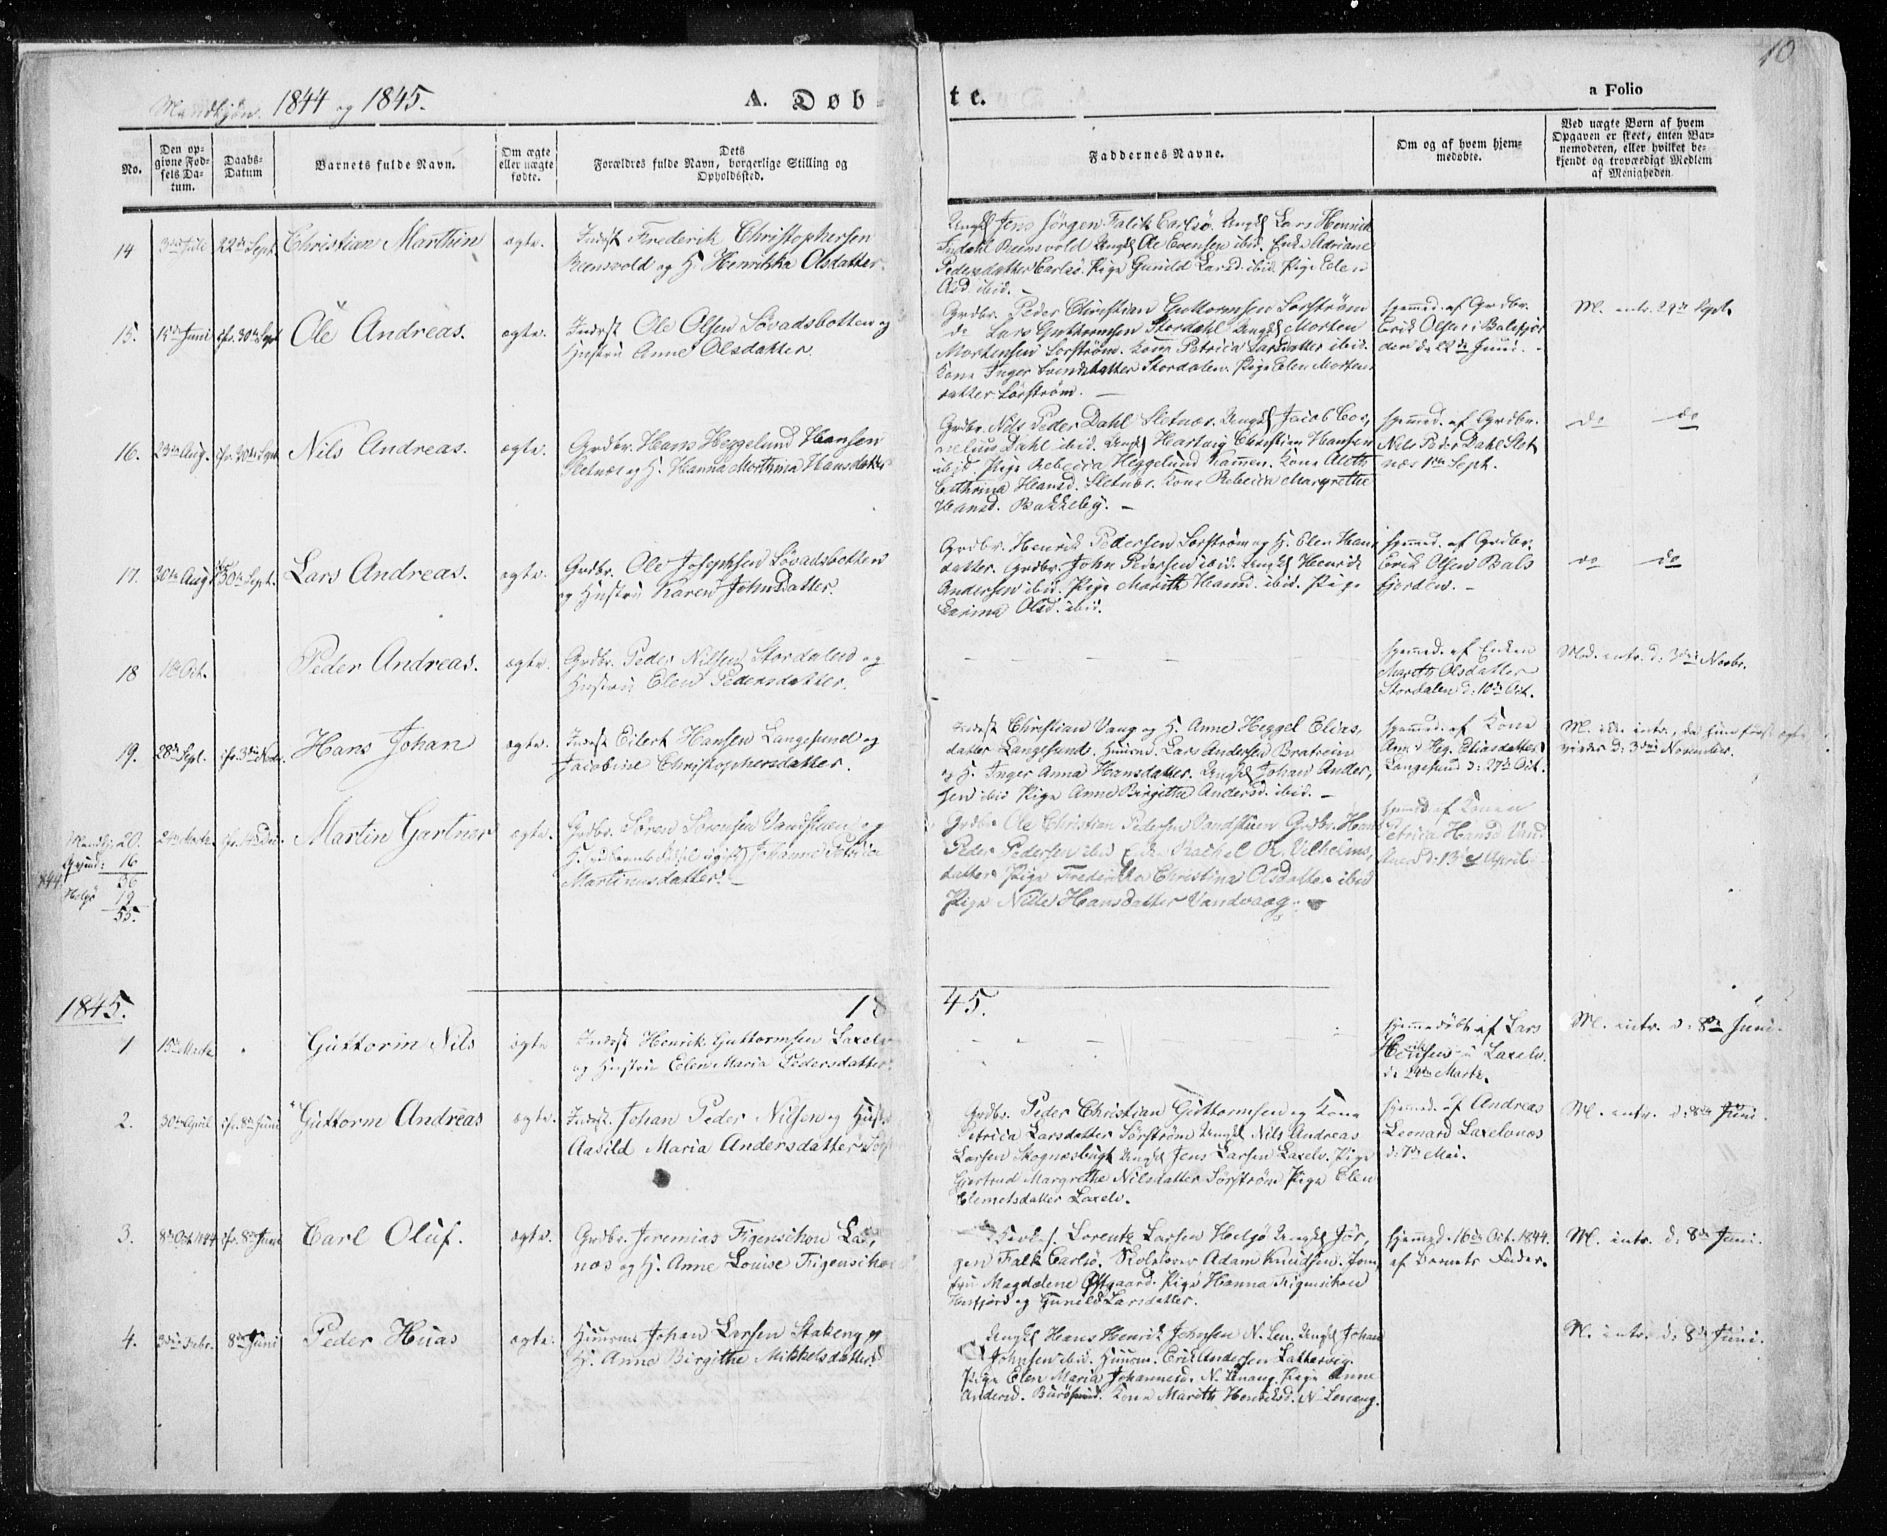 10
Mandkjøn. 1844 og 1845.
A. Døb-
te.
a Folio
No.
Den op-
givne Fød-
sels Da-
tum.
Daabs-
Datum
Barnets fulde Navn.
Om ægte
eller uægte
fødte.
Dets
Forældres fulde Navn, borgerlige Stilling og
Opholdssted.
Faddernes Navne.
Om og af hvem hjem-
medøbte.
Ved uægte Børn af hvem
Opgaven er skeet, enten Bar-
nemoderen, eller hvilket be-
kjendt og troværdigt Medlem
af Menigheden.
14
3die Juli
22de Sept.
Christian Marthin
ægte.
Indest Frederik Christophersen
Reensvold og H. Henrikka Olsdatter.
Ungk Jens Jörgen Falck Carlsö. Ungk Lars Henrik
Indahl Reensvold Ungk Ole Evensen ibid. Enke Adriane
Pedersdatter Carlsö. Pige Gunild Larsd. ibid. Pige Elen
Olsd ibid.
15.
15de Juni
cfr. 30te Sept
Ole Andreas.
ægte.
Indest Ole Olsen Sövadsbotten og
Hustru Anne Olsdatter.
Grdbr. Peder Christian Guttormsen Sorström
do Lars Guttormsen Stordahl Ungk Morten
Mortensen Sorström. Kone Petrica Larsdatter ibid.
Kone Inger Svendsdatter Stordalen. Pige Elen Mortens
datter Sörström.
hjemmed. af Grdbr.
Erik Olsen i Balsfjor
den d: 22de Juni.
M. intr. 29de Sept.
16.
23de Aug.
cfr. 30te Sept
Nils Andreas.
ægte.
Grdbr. Hans Heggelund Hansen
Sletnæs og H. Hanna Morthina Hansdatter
Grdbr. Nils Peder Dahl Sletnæs. Ungk Jacob Cor,
nelius Dahl ibid. Ungk Hartvig Christian Hansen
ibid. Pige Rebecca Heggelund Kamen. Kone Aleth
Cathrina Hansd. Sletnæs. Kone Rebecca Margrethe
Hansd. Bakkeby.
hjemmed. af Grdbr.
Nils Peder Dahl Slet
næs 1ste Sept.
do do
17.
30te Aug
30te Sept.
Lars Andreas.
ægte.
Grdbr. Ole Josephsen Sövadsbotten
og Hustru Karen Johnsdatter.
Grdbr. Henrik Pedersen Sorström og H. Elen Hans
datter. Grdbr. John Pedersen ibid. Ungk Henrik
Andersen ibid. Pige Marith Hansd. ibid. Pige
Carina Olsd. ibid.
hjemmed. af Grdbr.
Erik Olsen Bals
fjorden.
do do
18
1ste Oct.
Peder Andreas.
ægte.
Grdbr. Peder Nilsen Stordalen og
Hustru Elen Pedersdatter.
hjemmed. af Enken
Mareth Olsdatter
Stordalen d: 10de Oct.
Mod. intr. d: 3die Novbr.
19.
28de Sept.
cfr. 3die Nov.
Hans Johan
ægte.
Indest Eilert Hansen Langesund og
Jacobine Christophersdatter.
Indest Christian Vang og H. Anne Heggel. Elias,
datter Langesund. Huusmd. Lars Andersen Bratrein
og H. Inger Anna Hansdatter. Ungk Johan Ander,
sen ibid Pige Anne Birgitta Andersd. ibid.
hjemmed. af Kone
Anne Heg. Eliasdatter
Langesund d: 27de Oct.
M. ikke intr., da hun först ægte
vies d: 3die November.
Mandkj: 20.
Qvindk: 16
1844. 36
Helgö 19
55.
24de Marts
Martin Gartner
ægte.
Grdbr. Sören Sörensen Vandstuen og
Johanne Petrica
Martinusdatter.
Grdbr. Ole Christian Pedersen Vandstuen Grdbr. Hans
Peder Pedersen ibid Enke Rachel R. Vilhelms,
datter Pige Fredrikka Christina Olsdatter ibid
Pige Nille Hansdatter Vandvaag.
hjemmed. af Konen
Petrica Hansd.
d: 13de April
1845.
18
45.
1
15de Marts
Guttorm Nils
ægte
Indest Henrik Guttormsen Laxelv
og Hustru Elen Maria Pedersdatter.
hjemmedöbt af Lars
Hendriksen i Laxelv.
d: 24de Marts.
M. intr. d: 8de Juni.
2.
30te April
cfr. 8de Juni
Guttorm Andreas
ægte.
Indest Johan Peder Nilsen og Hust
Aasild Maria Andersdatter
Grdbr. Peder Christian Guttormsen og Kone
Petrica Larsdatter Sörström Ungk Nils Andreas
Larsen Skognæsbugt Ungk Jens Larsen Laxelv. Pige
Gjertrud Margrethe Nilsdatter Sörström Pige Elen
Clemetsdatter Laxelv.
hjemmed. af Andreas
Leonard Laxelvnæs
d: 1ste Mai.
M. intr. d: 8de Juni.
3.
8de Oct 1844
cfr. 8de Juni
Carl Oluf.
ægte.
Grdbr. Jeremias Figenschou
næs og H. Anne Louise Figenschou
Lorentz Larsen Helgö Ungk Jör,
gen Falk Carlsö. Skolelærer Adam Knudsen. Jom
fru Magdalene Östgaard. Pige Hanna Figenschou
og Gunild Larsdatter.
hjemmed. 16de Oct. 1844.
af Barnets Fader.
M. intr. d: 8de Juni.
4.
3die Febr.
8de Juni
Peder Huas
ægte.
Huusmd Johan Larsen Stakeng og
H. Anne Birgithe Mikkelsdatter
Ungk Hans Henrik Johnsen N. Len. Ungk Johan
Johnsen ibid. Huusm. Erik Andersen Lattervig.
Pige Elen Maria Johannesd. N. Lenang. Pige Anne
Andersd. Burösund. Kone Marith Henriksd. N. Lenang.
M. intr. d: 8de Juni.